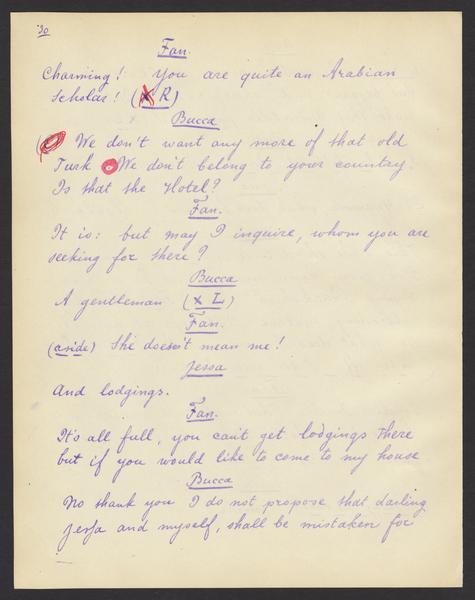 30
Fan.
Charming! You are quite an Arabian
scholar! (x R)
Bucca
( We don't want any more of that old
Turk We don't belong to your country.
Is that the Hotel?
Fan.
It is: but may I inquire, whom you are
seeking for there?
Bucca
A gentleman (x L)
Fan.
(aside) She doesn't mean me!
Jessa
And lodgings.
Fan.
It's all full, you can't get lodgings there
but if you would like to come to my house
Bucca
No thank you I do not propose that darling
Jessa and myself, shall be mistaken for